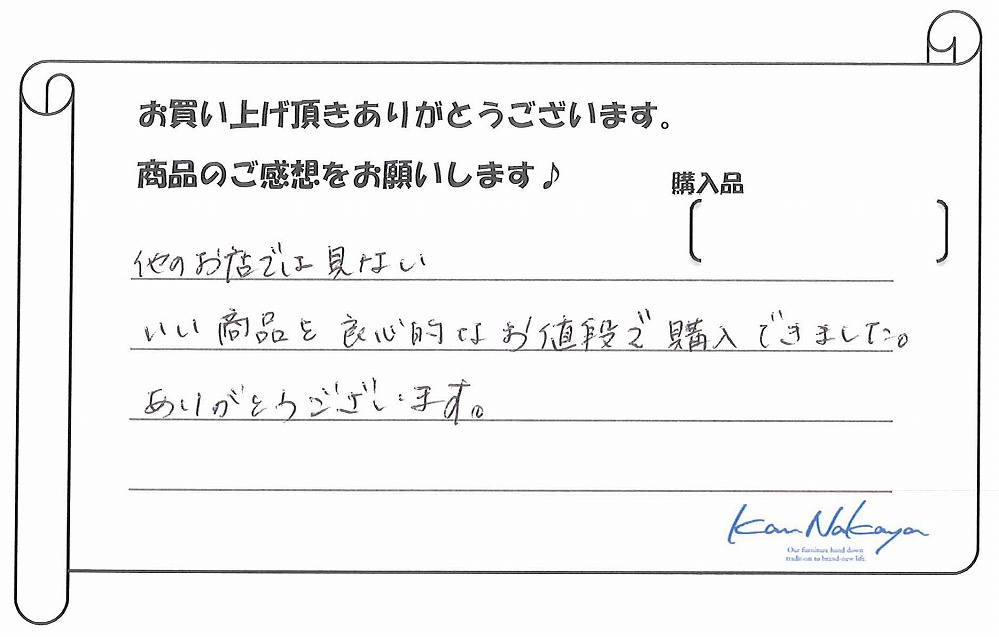 お買い上げ頂きありがとうございます。
商品のご感想をお願いします♪
購入品
他のお店では見ない
いい商品を良心的なお値段で購入できました。
ありがとうございます。
Kan Nakaya
Our furniture hand down
tradition to brand-new life.